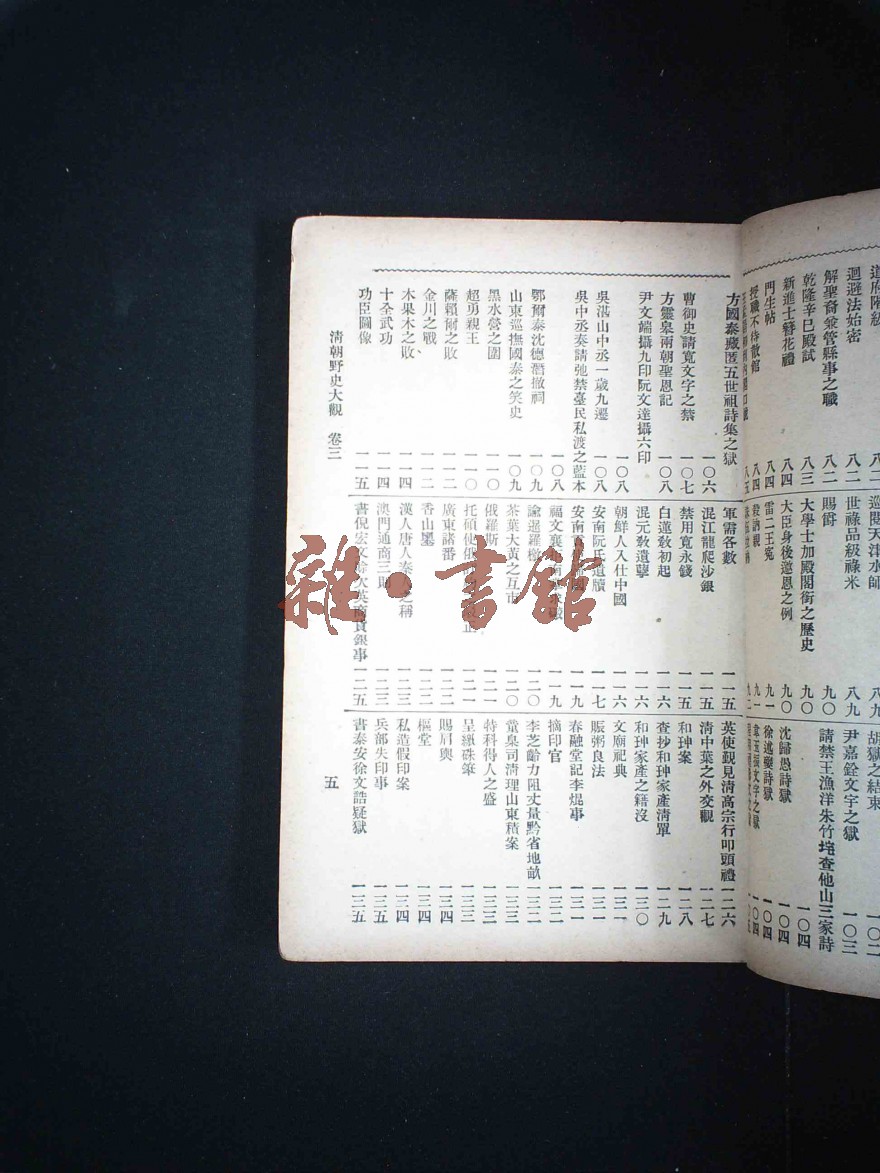 道府階級
迴避法始密 八二
解聖裔兼管縣事之職 八二
乾隆辛巳殿試 八三
新進士簪花禮 八四
門生帖 八四
授職不待散館 八四
八五
巡閱天津水師 八九
世祿品級祿米 八九
賜爵 九〇
大學士加殿閣銜之歷史 九〇
大臣身後邀恩之例 九〇
雷二王冤 九一
殺訥親 九一
九二
胡獄之結束 一〇二
尹嘉銓文字之獄 一〇三
請禁王漁洋朱竹垞查他山三家詩 一〇四
沈歸愚詩獄 一〇四
徐述夔詩獄 一〇四
韋玉振文字之獄 一〇四
方國泰藏匿五世祖詩集之獄 一〇六
曹御史請寬文字之禁 一〇七
方靈皋兩朝聖恩記 一〇八
尹文端攝九印阮文達攝六印 一〇八
吳湛山中丞一歲九遷 一〇八
吳中丞奏請弛禁臺民私渡之藍本 一〇八
鄂爾泰沈德潛撤祠 一〇九
山東巡撫國泰之笑史 一〇九
黑水營之圍 一一〇
超勇親王 一一〇
薩賴爾之敗 一一二
金川之戰 一一二
木果木之敗 一一四
十全武功 一一四
功臣圖像 一一五
軍需各數 一一五
混江龍爬沙銀 一一五
禁用寬永錢 一一五
白蓮敎初起 一一六
混元敎遺孽 一一六
朝鮮人入仕中國 一一六
安南阮氏遺牘 一一七
安南 一一九
福文襄 一一九
諭暹羅檄 一二〇
茶葉大黃之互市 一二〇
俄羅斯 一二一
托碩使俄 正 一二一
廣東諸番 一二二
香山墨 一二二
漢人唐人秦人之稱 一二三
澳門通商三則 一二三
書倪宏文賒欠英商貨銀事 一二五
英使覲見淸高宗行叩頭禮 一二六
淸中葉之外交觀 一二七
和珅案 一二八
查抄和珅家產淸單 一二九
和珅家產之籍沒 一三〇
文廟祀典 一三一
賑粥良法 一三一
春融堂記李焜事 一三一
摘印官 一三二
李芝齡力阻丈量黔省地畝 一三二
黨臬司淸理山東積案 一三三
特科得人之盛 一三三
呈繳硃筆 一三三
賜肩輿 一三四
樞堂 一三四
私造假印案 一三四
兵部失印事 一三五
書泰安徐文誥疑獄 一三五
淸朝野史大觀 卷三 五
雜·書館